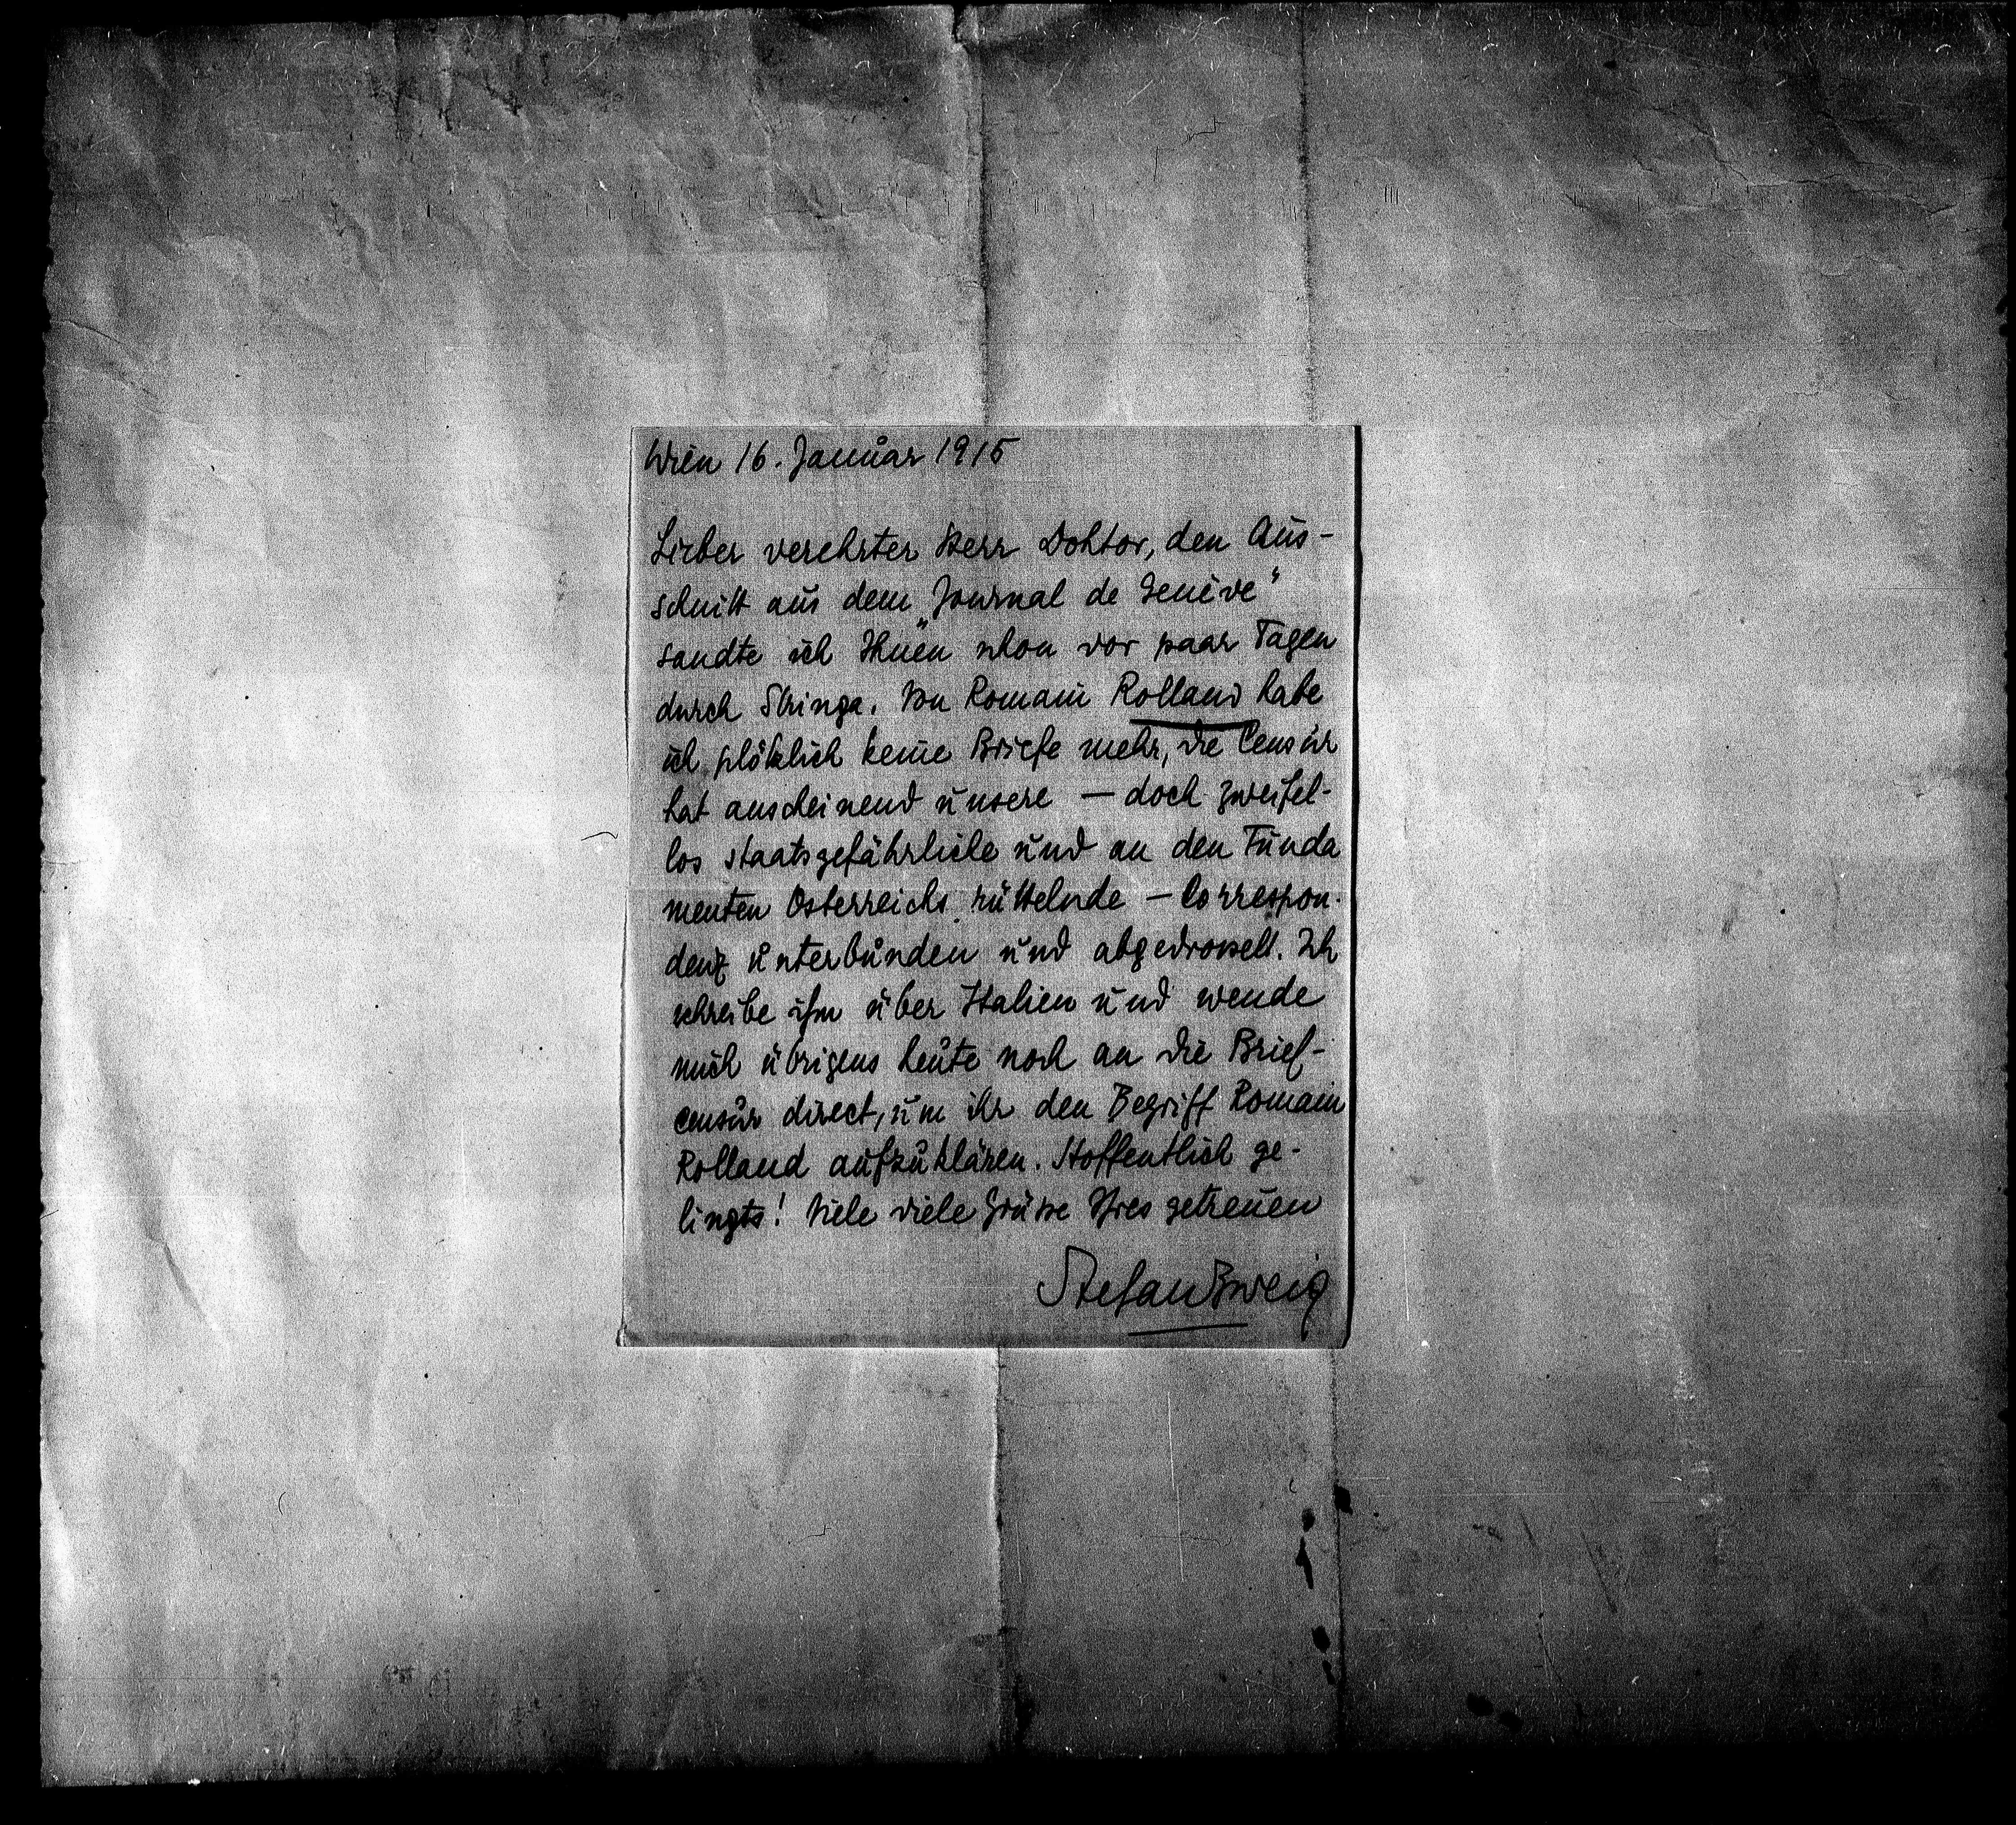 Wien 16. Januar 1915
Lieber verehrter Herr Doktor, den Aus-
schnitt aus dem „Journal de Genève“
sandte ich Ihnen schon vor paar Tagen
durch Stringa. Von Romain Rolland habe
ich plötzlich keine Briefe mehr, die Censur
hat anscheinend unsere — doch zweifel-
los staatsgefährliche und an den Funda
menten Österreichs rüttelnde — Correspon-
denz unterbunden und abgedrosselt. Ich
schreibe ihm über Italien und wende
mich übrigens heute noch an die Brief-
censur direct, um ihr den Begriff Romain
Rolland aufzuklären. Hoffentlich ge-
lingts! Viele viele Grüsse Ihres getreuen
Stefan Zweig